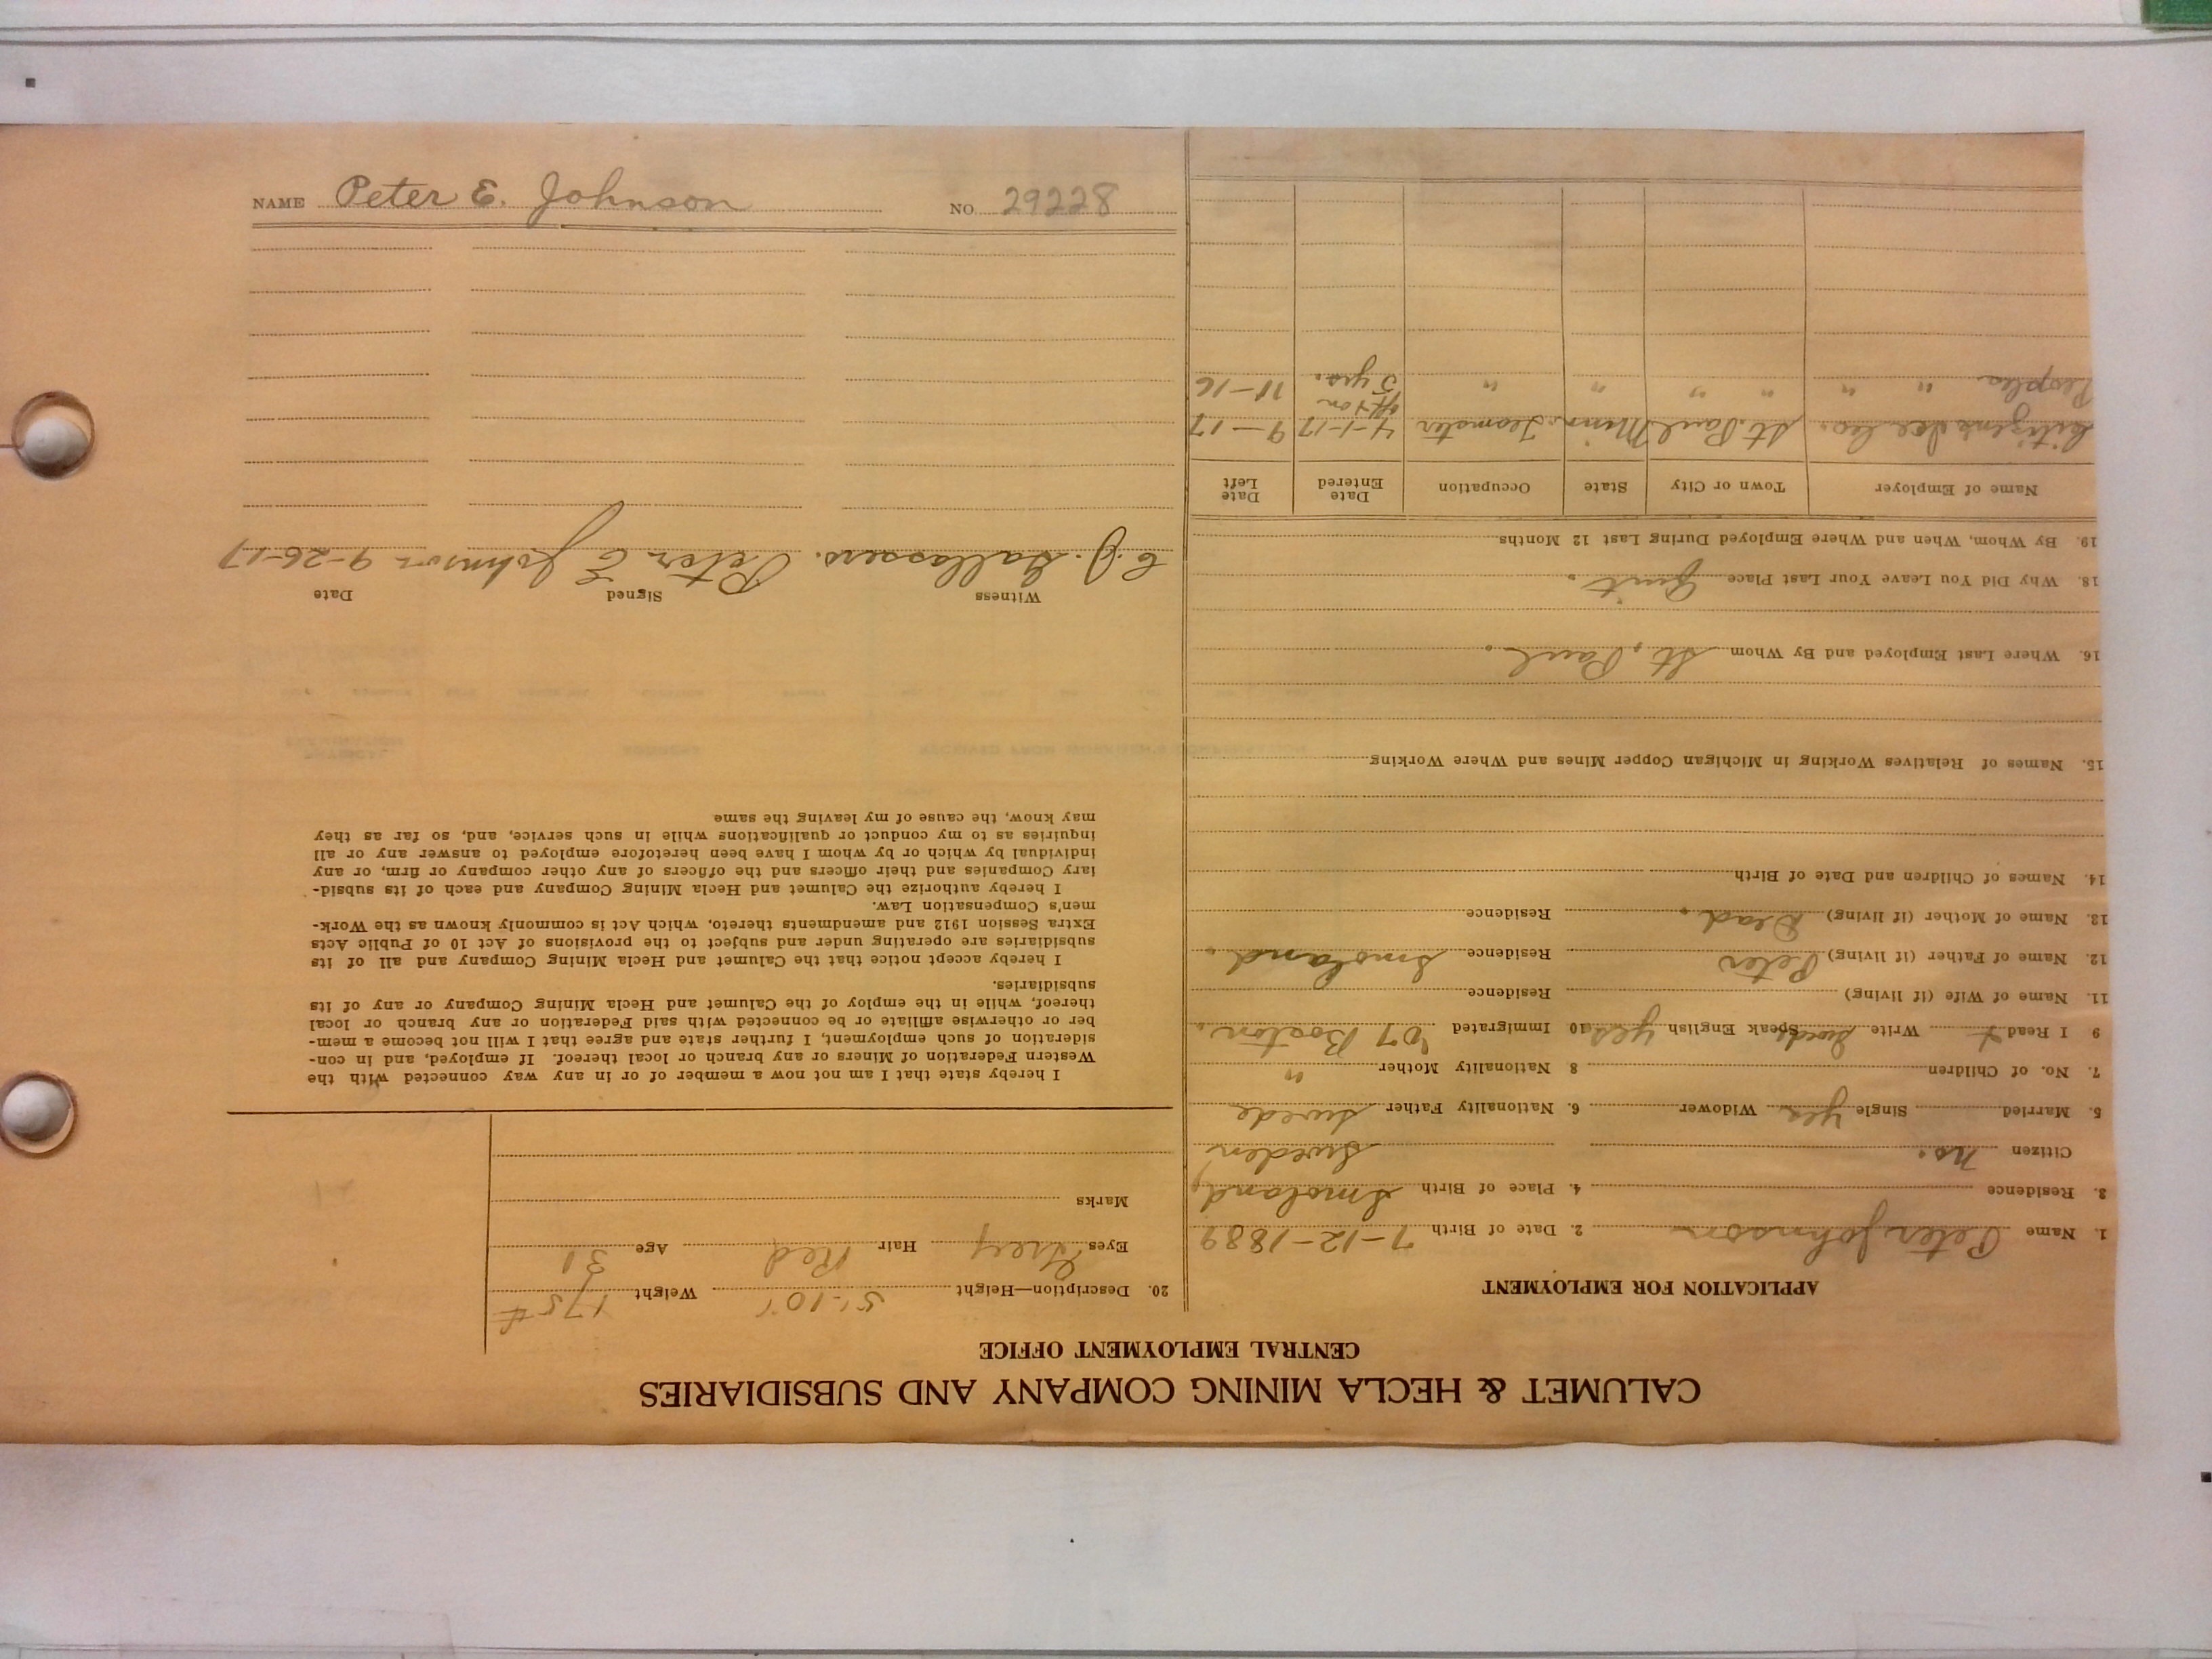 NAME Peter E. Johnson NO. 29228
CALUMET & HECLA MINING COMPANY AND SUBSIDIARIES
CENTRAL EMPLOYMENT OFFICE
APPLICATION FOR EMPLOYMENT
1. Name Peter Johnson 2. Date of Birth 7-12-1889
3. Residence 4. Place of Birth Smoland,
Citizen no. Sweden
5. Married Single yes Widower 6. Nationality Father Swede
7. No. of Children 8 Nationality Mother "
9 I Read + Write Swede Speak English yes 10 Immigrated '07 Boston.
11. Name of Wife (if living) Residence
12. Name of Father (if living) Peter Residence Smoland.
13. Name of Mother (if living) Dead. Residence
14. Names of Children and Date of Birth
15. Names of Relatives Working in Michigan Copper Mines and Where Working
16. Where Last Employed and By Whom St. Paul.
18. Why Did You Leave Your Last Place Quit.
19. By Whom, When and Where Employed During Last 12 Months.
Name of Employer Town or City State Occupation Date Entered Date Left
Citizens Ice Co. St. Paul Minn. Teamster 4-1-17 9-17
off + on
Peoples " " " " " " 5 yrs. 11-16
20. Description—Height 5'-10" Weight 175#
Eyes Grey Hair Red Age 31
Marks
I hereby state that I am not now a member of or in any way connected with the
Western Federation of Miners or any branch or local thereof. If employed, and in con-
sideration of such employment, I further state and agree that I will not become a mem-
ber or otherwise affiliate or be connected with said Federation or any branch or local
thereof, while in the employ of the Calumet and Hecla Mining Company or any of its
subsidiaries.
I hereby accept notice that the Calumet and Hecla Mining Company and all of its
subsidiaries are operating under and subject to the provisions of Act 10 of Public Acts
Extra Session 1912 and amendments thereto, which Act is commonly known as the Work-
men's Compensation Law.
I hereby authorize the Calumet and Hecla Mining Company and each of its subsid-
iary Companies and their officers and the officers of any other company or firm, or any
individual by which or by whom I have been heretofore employed to answer any or all
inquiries as to my conduct or qualifications while in such service, and, so far as they
may know, the cause of my leaving the same
Witness Signed Date
Peter E Johnson 9-26-17